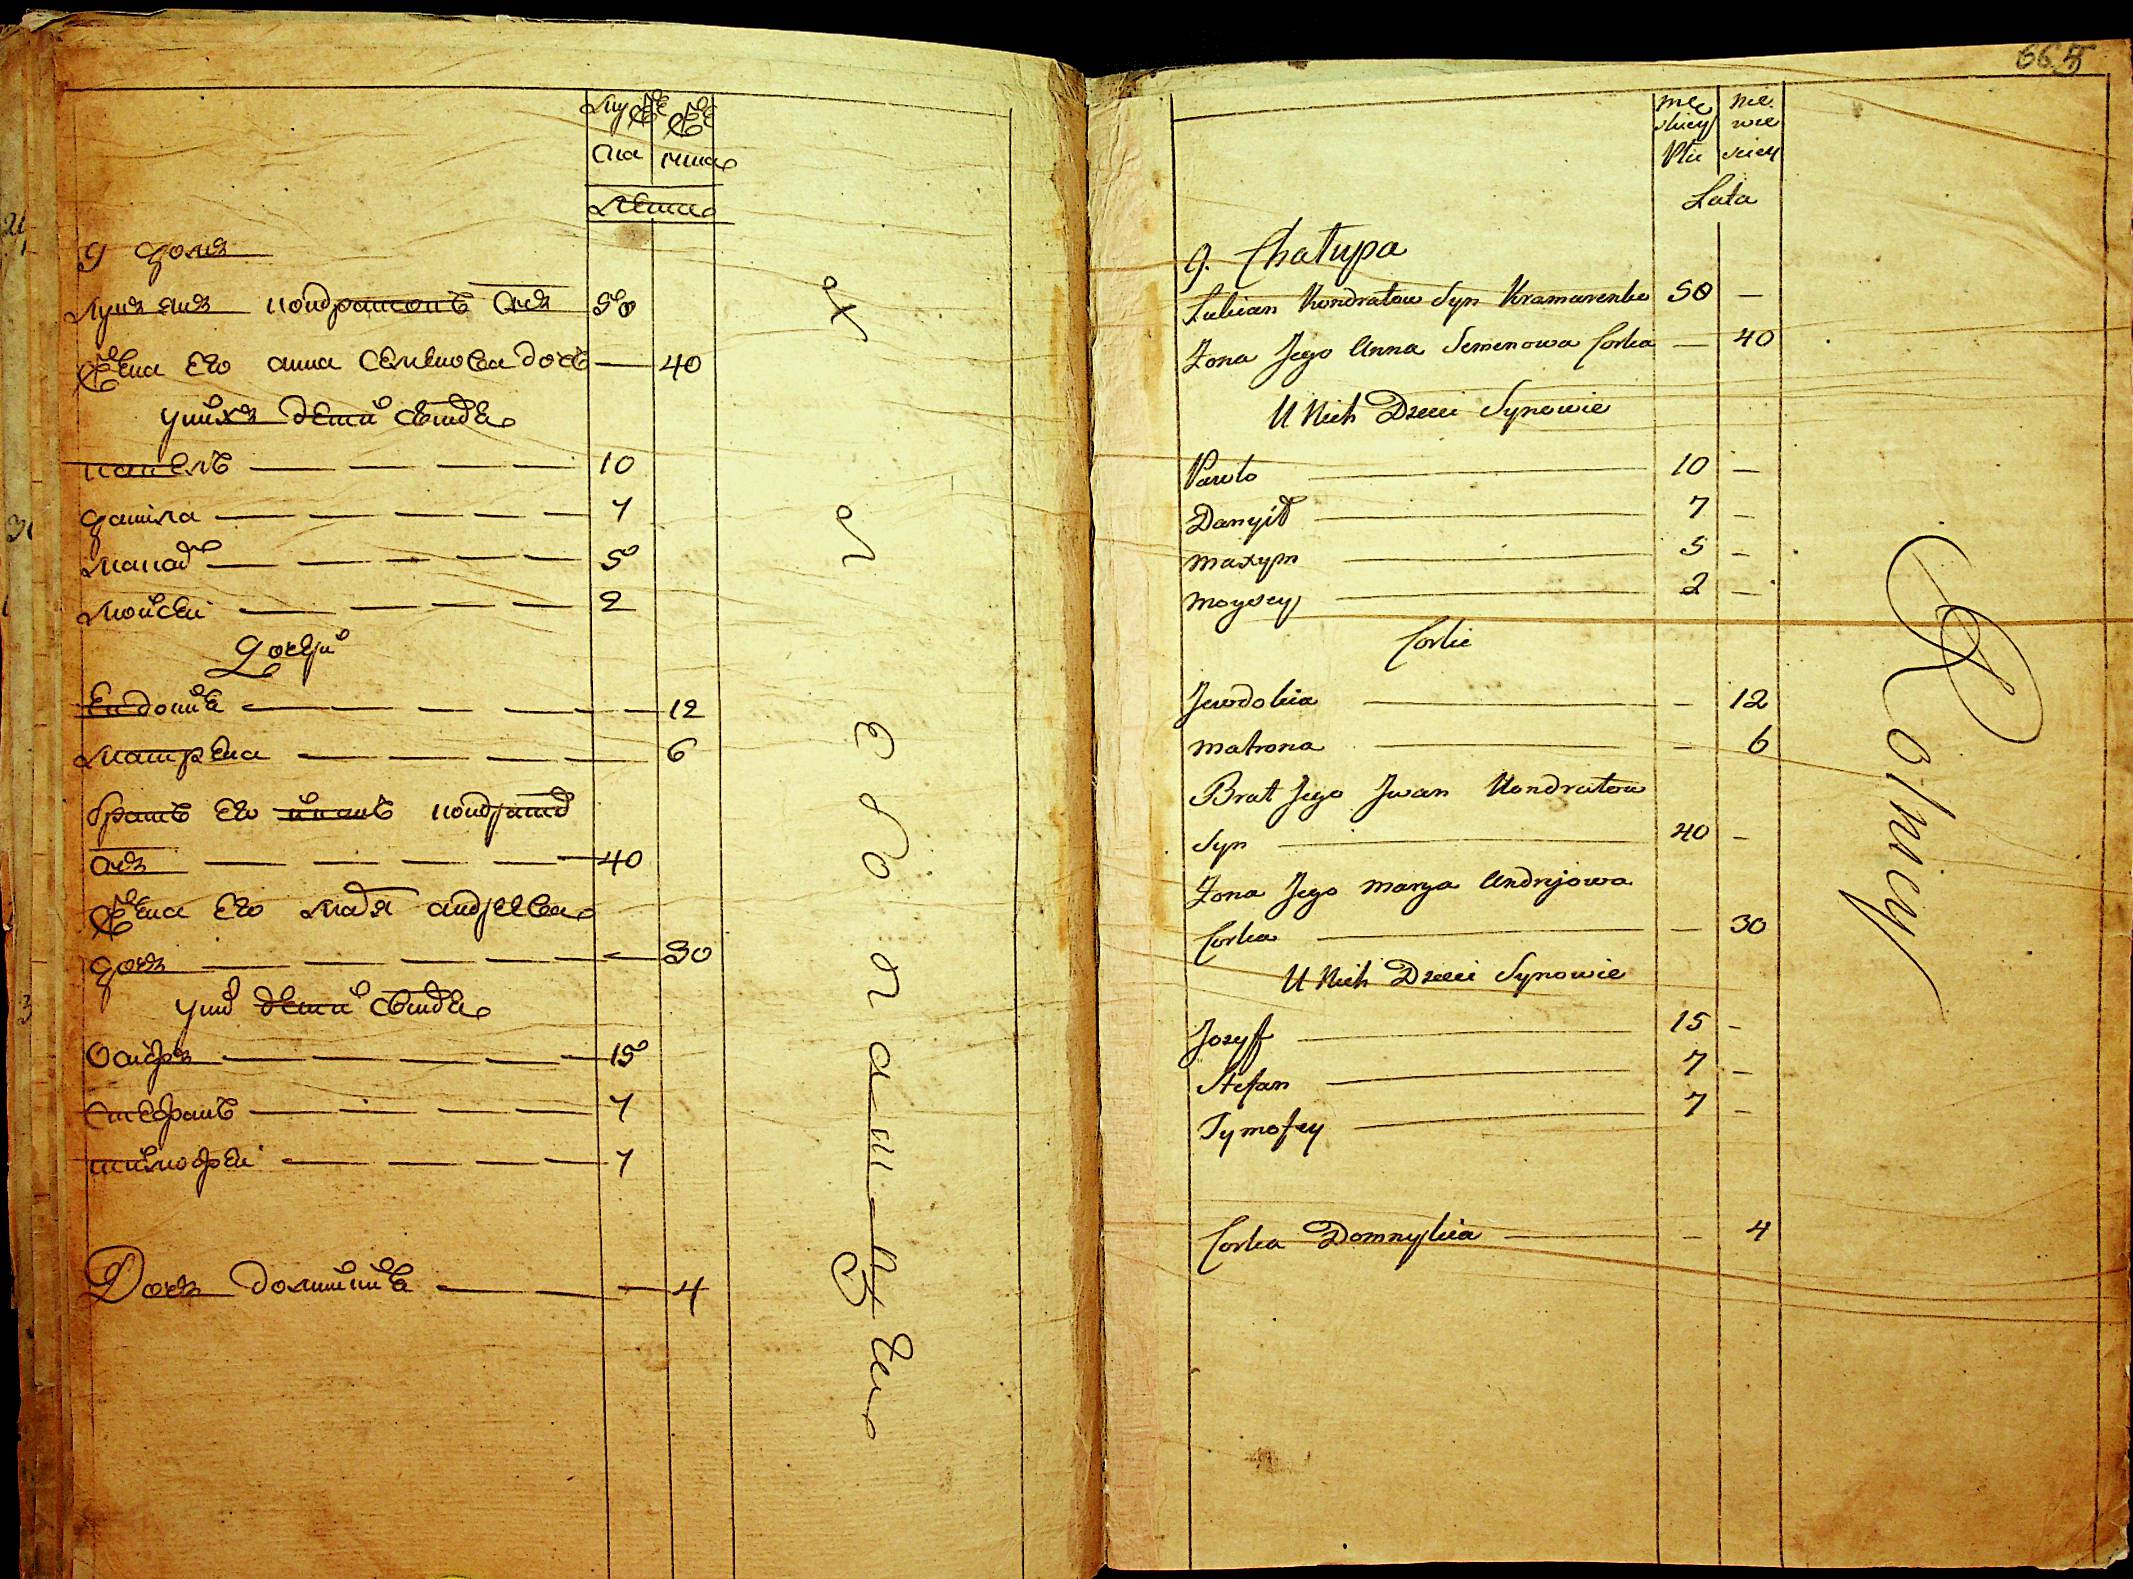 муже
ска
жен
ска
лета
9 домъ
Лукянъ кондратовъ снъ 50
жена его анна семенова дочь — 40
у нихъ дети синове
павелъ 10
данила 7
5
мойсей 2
дочери
евдокия 12
матрена 6
братъ его иванъ кондратов
снъ 40
жена его маря андреева
дочь 30
у них дети синове
осифъ 15
стефанъ 7
тимофей 7
дочь домникия 4
665
Mę
skiey
Płci
nie
wie
sciey
Lata
9. Chałupa
Łukian Kondratow Syn Kramarenko 50 —
Żona Jego Anna Semenowa Corka — 40
U Nich Dzieci Synowie
Pawło 10 —
Danyił 7 —
Maxym 5 —
Moysey 2 —
Corki
Jewdokia — 12
Matrona — 6
Brat Jego Jwan Kondratow
Syn 40 —
Żona Jego Marya Andrejowa
Corka — 30
U Nich Dzieci Synowie
Jozyff 15 —
Stefan 7 —
Tymofey 7 —
Corka Domnykia — 4
Rolniey